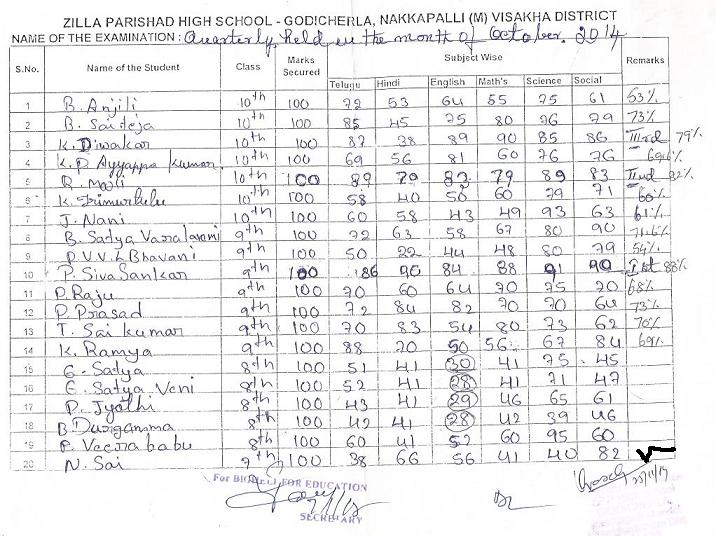 ZILLA PARISHAD HIGH SCHOOL - GODICHERLA, NAKKAPALLI (M) VISAKHA DISTRICT
NAME OF THE EXAMINATION : Quarterly held in the month of October. 2014
S.No. Name of the Student Class Marks Secured Subject Wise Remarks
Telugu Hindi English Math's Science Social
1 B. Anjili 10th 100 72 53 64 55 75 61 63%
2 B. Sai teja 10th 100 85 45 75 80 76 79 73%
3 K. Diwakar 10th 100 87 38 89 90 85 86 IIIrd 79%
4 K.D Ayyappa kumar 10th 100 69 56 81 60 76 76 69.6%
5 R. Mouli 10th 100 89 79 83 79 89 83 IInd 82%
6 K. Trimurthulu 10th 100 58 40 50 60 79 71 60%
7 J. Nani 10th 100 60 58 43 49 93 63 61%
8 B. Satya 9th 100 72 63 58 67 80 90 71.6%
9 P.V.V.L Bhavani 9th 100 50 22 44 48 80 79 54%
10 P. Siva Sankar 9th 100 86 90 84 88 91 90 Ist 88%
11 P. Raju 9th 100 70 60 64 70 75 70 68%
12 P. Prasad 9th 100 72 84 82 70 70 64 73%
13 T. Sai kumar 9th 100 70 83 54 80 73 62 70%
14 K. Ramya 9th 100 88 70 50 56 67 84 69%
15 G. Satya 8th 100 51 41 30 41 75 45
16 G. Satya Veni 8th 100 52 41 28 41 71 47
17 P. Jyothi 8th 100 43 41 29 46 65 61
18 B. Durgamma 8th 100 42 41 28 42 39 46
19 P. Veerababu 8th 100 60 41 52 60 95 60
20 N. Sai 7th 100 38 66 56 41 40 82
For FOR EDUCATION
SECRETARY